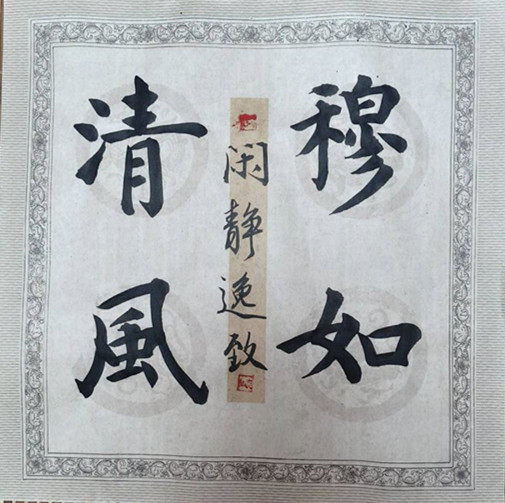 穆如
清風
闲静逸致